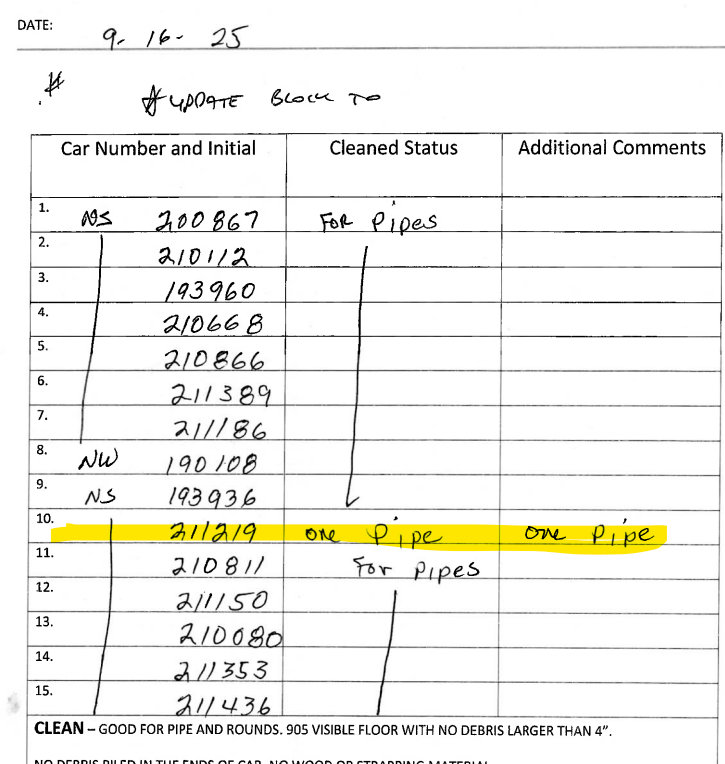 DATE: 9-16-25
# 
# UPDATE BLOCK TO
Car Number and Initial Cleaned Status Additional Comments
1. NS 200867 FOR Pipes
2. 210112
3. 193960
4. 210668
5. 210866
6. 211389
7. 211186
8. NW 190108
9. NS 193936
10. 211219 one Pipe one Pipe
11. 210811 For Pipes
12. 211150
13. 210080
14. 211353
15. 211436
CLEAN – GOOD FOR PIPE AND ROUNDS. 905 VISIBLE FLOOR WITH NO DEBRIS LARGER THAN 4”.
NO DEBRIS PILED IN THE ENDS OF CAR. NO WOOD OR STRAPPING MATERIAL